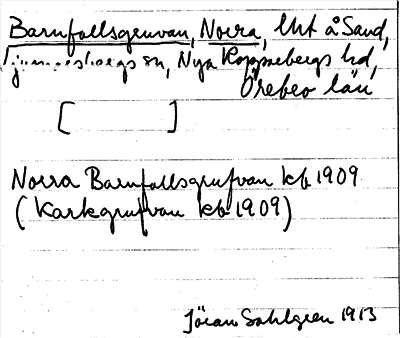 Barnfallsgruvan, Norra, Uht å Sand,
Ljusnarsbergs sn, Nya Kopparbergs hd,
Örebro län
[ ]
Norra Barnfallsgrufvan kb 1909
(Karkgrufvan kb 1909)
Jöran Sahlgren 1913